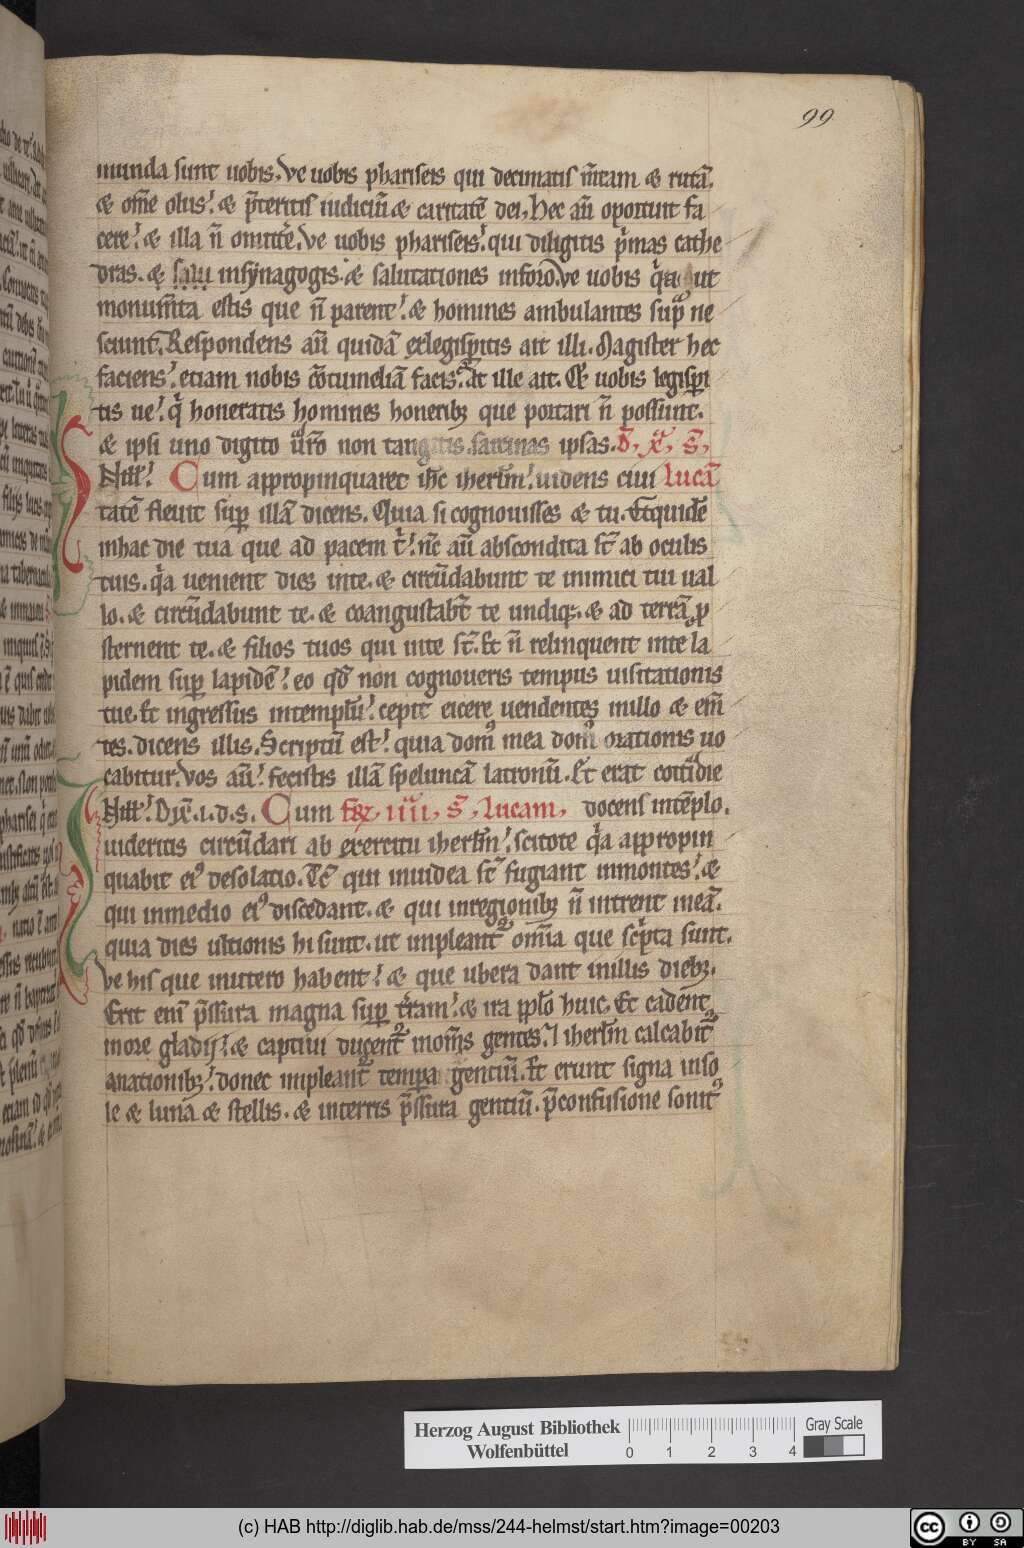 99
munda sunt uobis. Ve uobis phariseis qui decimatis m̅tam & rutā.
& om̅e olus. & p̅teritis iudiciū & caritatē dei, Hec aū oportuit fa
cere. & illa n̅ omitt̅e. Ve uobis phariseis. qui diligitis p̍mas cathe
dras. & insynagogis. & salutationes inforo. Ve uobis q̍a ut
monum̅ta estis que n̅ parent. & homines ambulantes sup͛ ne
sciunt. Respondens aū quidā exlegisp̍itis ait illi. Magister hec
faciens. etiam nobis cōtumeliā facis. At ille ait. Et uobis legisp̍i
tis ue. q̍ honeratis homines honerib; que portari n̅ possunt.
& ipsi uno digito ur̅o non tangitis sarcinas ipsas.
N Cum appropinquaret ih̅c iherl̅m. uidens ciui lucā
tatē fleuit sup illā dicens. Quia si cognouisses & tu. Etquidē
inhac die tua que ad pacem t̍. n̅c aū abscondita st̅ ab oculis
tuis. q̍a uenient dies inte. & circūdabunt te inimici tui ual
lo. & circūdabunt te. & coangustabt̅ te undiq;. & ad terrā p
sternent te. & filios tuos qui inte st̅. Et n̅ relinquent inte la
pidem sup lapidē. eo qđ non cognoueris tempus uisitationis
tue. Et ingressus intemplū. cepit eicere uendentes inillo & em̅
tes. dicens illis. Scriptū est. quia dom᷒ mea dom᷒ orationis uo
cabitur. Vos aū. fecistis illā speluncā latronū. Et erat cottidie
Dix̅. i. d. s. Cum f̅, iiii, s̅, lucam, docens intēplo.
uideritis circūdari ab exercitu iherl̅m. scitote q̍a appropin
quabit ei᷒ desolatio. Tc̅ qui iniudea st̅ fugiant inmontes. &
qui inmedio ei᷒ discedant. & qui inregionib; n̅ intrent ineā.
quia dies ultionis hi sunt. ut impleant᷑ om̅ia que sc̍pta sunt.
Ve his que inutero habent. & que ubera dant inillis dieb;.
Erit eni̅ p̅ssura magna sup t̅ram. & ira ppl̅o huic. Et cadent
inore gladij. & captiui ducent᷑ inom̅s gentes. iherl̅m calcabit᷑
anationib;. donec impleant᷑ tempora gentiū. Et erunt signa inso
le & luna & stellis. & interris p̅ssura gentiū. p̅confusione sonit᷒
Herzog August Bibliothek
Wolfenbüttel
0 1 2 3 4
Gray Scale
(c) HAB http://diglib.hab.de/mss/244-helmst/start.htm?image=00203
cc BY SA